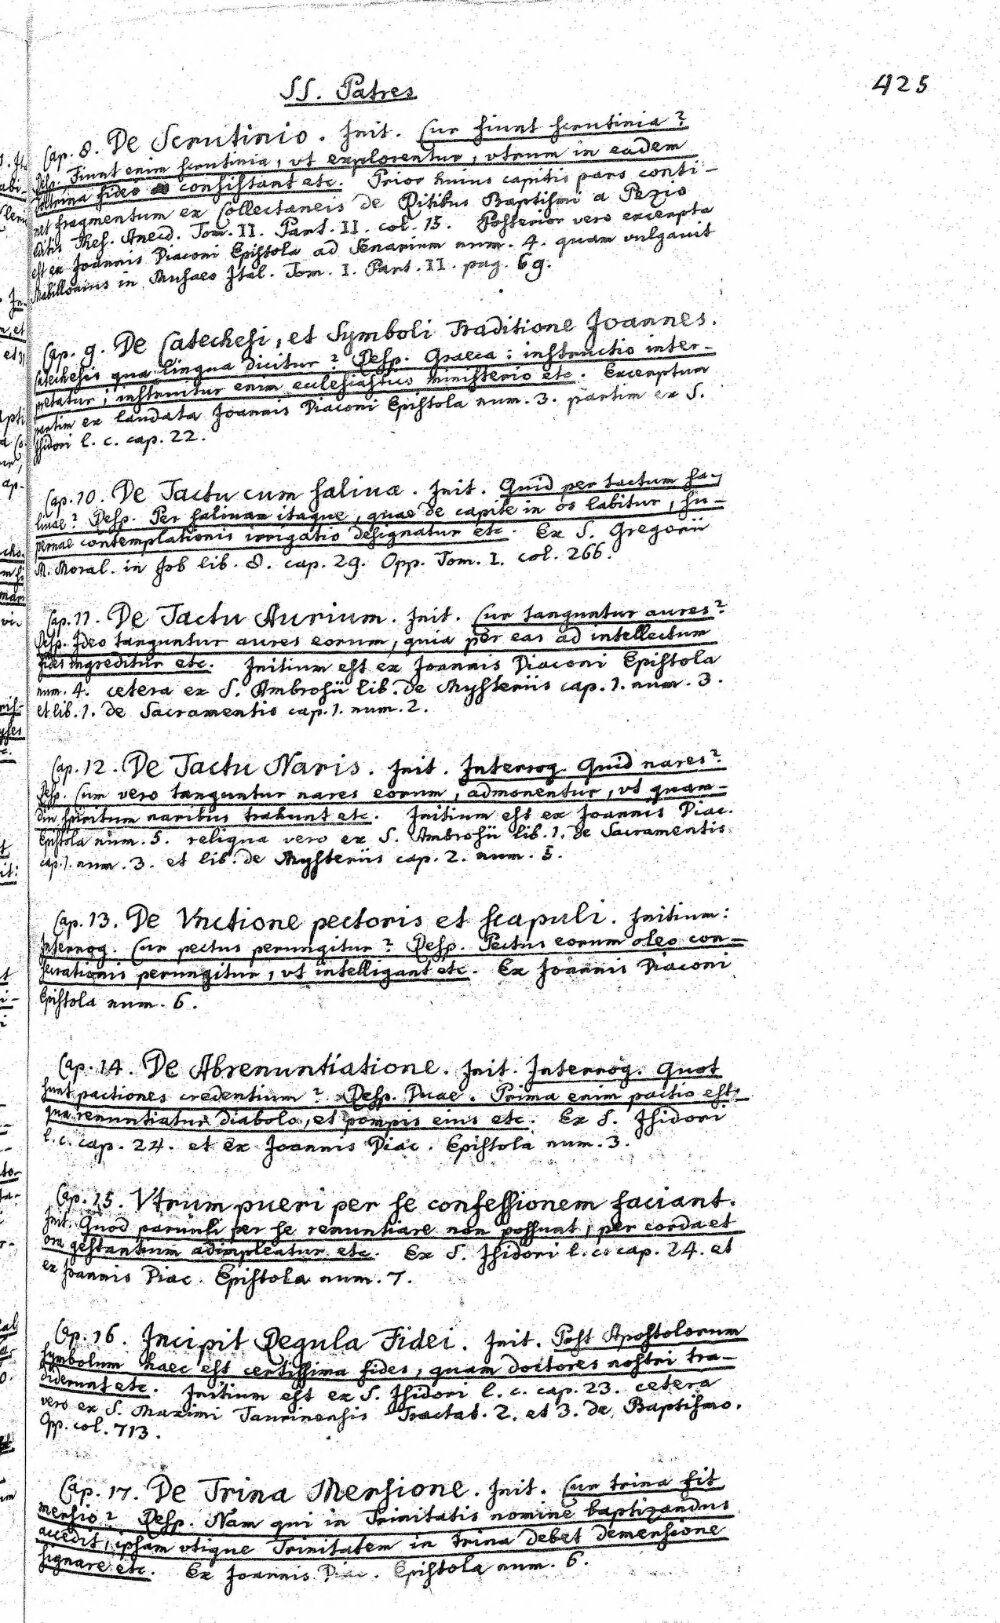 SS. Patres
425
Cap. 8. De Scrutinio. Init. Cur fiunt scrutinia?
Resp. Fiunt enim scrutinia, vt explorentur, vtrum in eadem
doctrina fidei consistant etc. Prior huius capitis pars conti-
net fragmentum ex Collectaneis de Ritibus Baptismi a Pezio
editis Thes. Anecd. Tom. II. Part. II. col. 15. Posterior vero excerpta
est ex Joannis Diaconi Epistola ad Senarium num. 4. quam vulgauit
Mabillonius in Musaeo Ital. Tom. I. Part. II. pag. 69.
Cap. 9. De Catechesi, et Symboli Traditione Joannes.
Catechesis qua lingua dicitur? Resp. Graeca: instructio inter-
pretatur; instruitur enim ecclesiastico ministerio etc. Excerptum
partim ex laudata Joannis Diaconi Epistola num. 3. partim ex S.
Isidori l. c. cap. 22.
Cap. 10. De Tactu cum saliua. Init. Quid per tactum sa-
liuae? Resp. Per saliuam itaque, quae de capite in os labitur, su-
pernae contemplationis irrigatio designatur etc. Ex S. Gregorii
M. Moral. in Job lib. 8. cap. 29. Opp. Tom. I. col. 266.
Cap. 11. De Tactu Aurium. Init. Cur tanguntur aures?
Resp. Ideo tanguntur aures eorum, quia per eas ad intellectum
fides ingreditur etc. Initium est ex Joannis Diaconi Epistola
num. 4. cetera ex S. Ambrosii lib. de Mysteriis cap. 1. num. 3.
et lib. 1. de Sacramentis cap. 1. num. 2.
Cap. 12. De Tactu Naris. Init. Interrog. Quid nares?
Resp. Cum vero tanguntur nares eorum, admonentur, vt quam-
diu spiritum naribus trahunt etc. Initium est ex Joannis Diac.
Epistola num. 5. reliqua vero ex S. Ambrosii lib. 1. de Sacramentis
cap. 1. num. 3. et lib. de Mysteriis cap. 2. num. 5.
Cap. 13. De Vnctione pectoris et scapuli. Initium:
Interrog. Cur pectus perungitur? Resp. Pectus eorum oleo con-
secrationis perungitur, vt intelligant etc. Ex Joannis Diaconi
Epistola num. 6.
Cap. 14. De Abrenuntiatione. Init. Interrog. Quot
sunt pactiones credentium? Resp. Duae. Prima enim pactio est,
qua renuntiatur diabolo, et pompis eius etc. Ex S. Isidori
l. c. cap. 24. et ex Joannis Diac. Epistola num. 3.
Cap. 15. Vtrum pueri per se confessionem faciant.
Init. Quod paruuli per se renuntiare non possunt, per corda et
ora gestantium adimpleatur etc. Ex S. Isidori l. c. cap. 24. et
ex Joannis Diac. Epistola num. 7.
Cap. 16. Incipit Regula Fidei. Init. Post Apostolorum
symbolum haec est certissima fides, quam doctores nostri tra-
diderunt etc. Initium est ex S. Isidori l. c. cap. 23. cetera
vero ex S. Maximi Taurinensis Tractat. 2. et 3. de Baptismo.
Opp. col. 713.
Cap. 17. De Trina Mersione. Init. Cur trina fit
mersio? Resp. Nam qui in Trinitatis nomine baptizandus
accedit, ipsam vtique Trinitatem in trina debet demersione
signare etc. Ex Joannis Diac. Epistola num. 6.